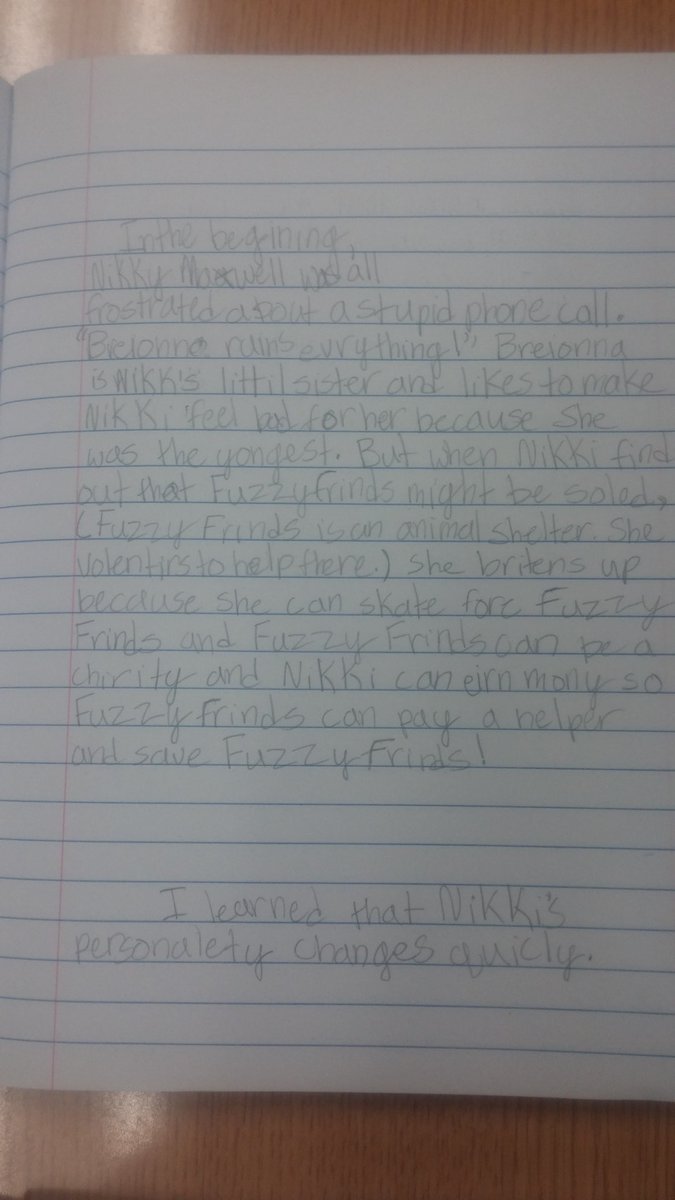 In the begining,
Nikky Maxwell was all
frostrated about a stupid phone call.
"Breionna ruins evrything!", Breionna
is Nikki's littil sister and likes to make
Nikki feel bad for her because she
was the yongest. But when Nikki find
out that Fuzzy frinds might be soled,
(Fuzzy Frinds is an animal shelter. She
volentirs to help there.) She britens up
because she can skate fore Fuzzy
Frinds and Fuzzy Frinds can be a
chirity and Nikki can eirn mony so
Fuzzy frinds can pay a helper
and save Fuzzy Frinds!
I learned that Nikki's
personalety changes quicly.